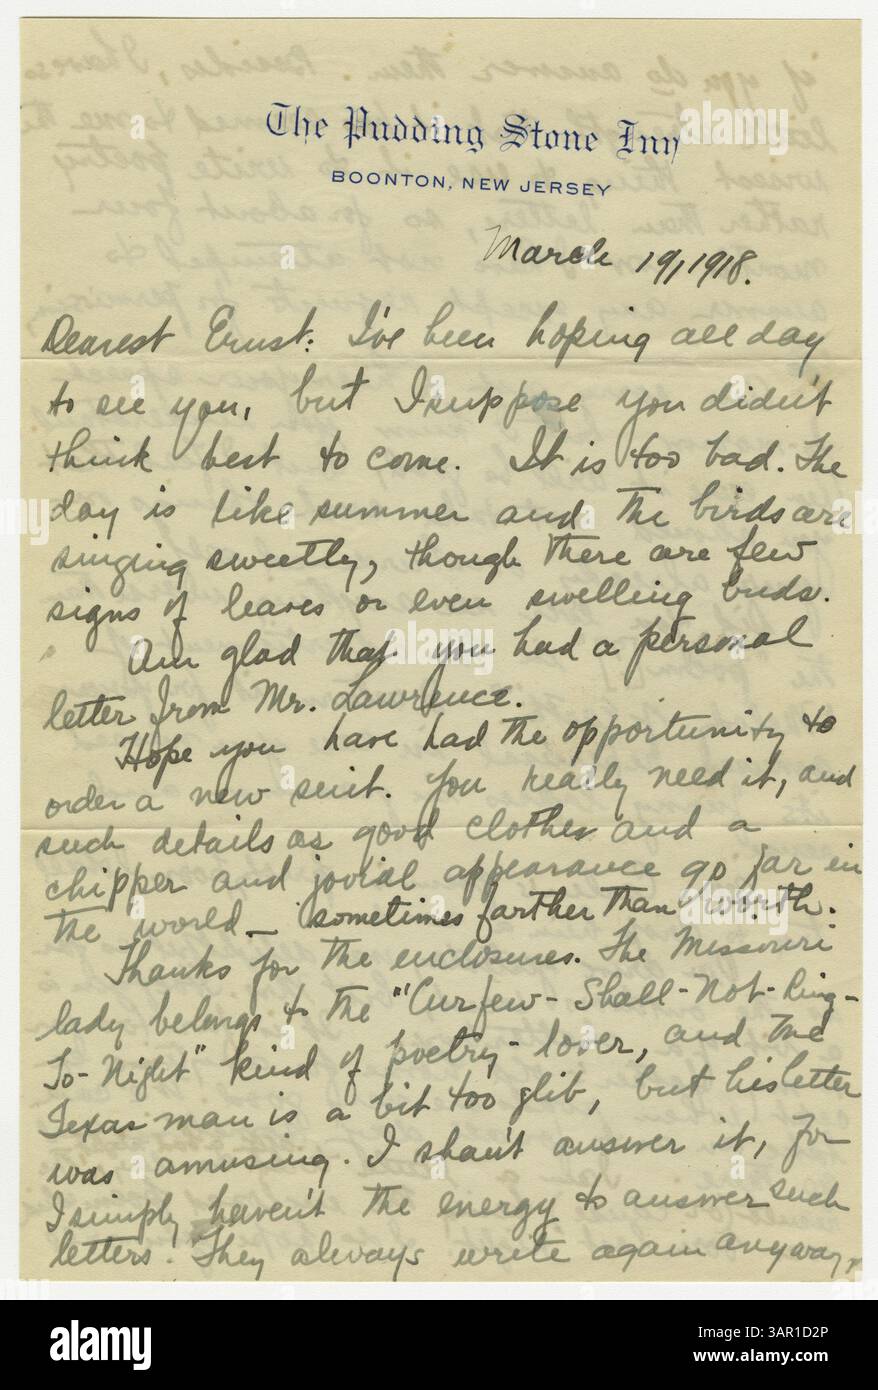 The Pudding Stone Inn
BOONTON, NEW JERSEY
March 19, 1918.
Dearest Ernst: I've been hoping all day
to see you, but I suppose you didn't
think best to come. It is too bad. The
day is like summer and the birds are
singing sweetly, though there are few
signs of leaves or even swelling buds.
Am glad that you had a personal
letter from Mr. Lawrence.
Hope you have had the opportunity to
order a new suit. You really need it, and
such details as good clothes and a
chipper and jovial appearance go far in
the world — sometimes farther than worth.
Thanks for the enclosures. The Missouri
lady belongs to the "Curfew-Shall-Not-Ring-
To-Night" kind of poetry-lover, and the
Texas man is a bit too glib, but his letter
was amusing. I shan't answer it, for
I simply haven't the energy to answer such
letters. They always write again anyway,
alamy
Image ID: 3AR1D2P
www.alamy.com